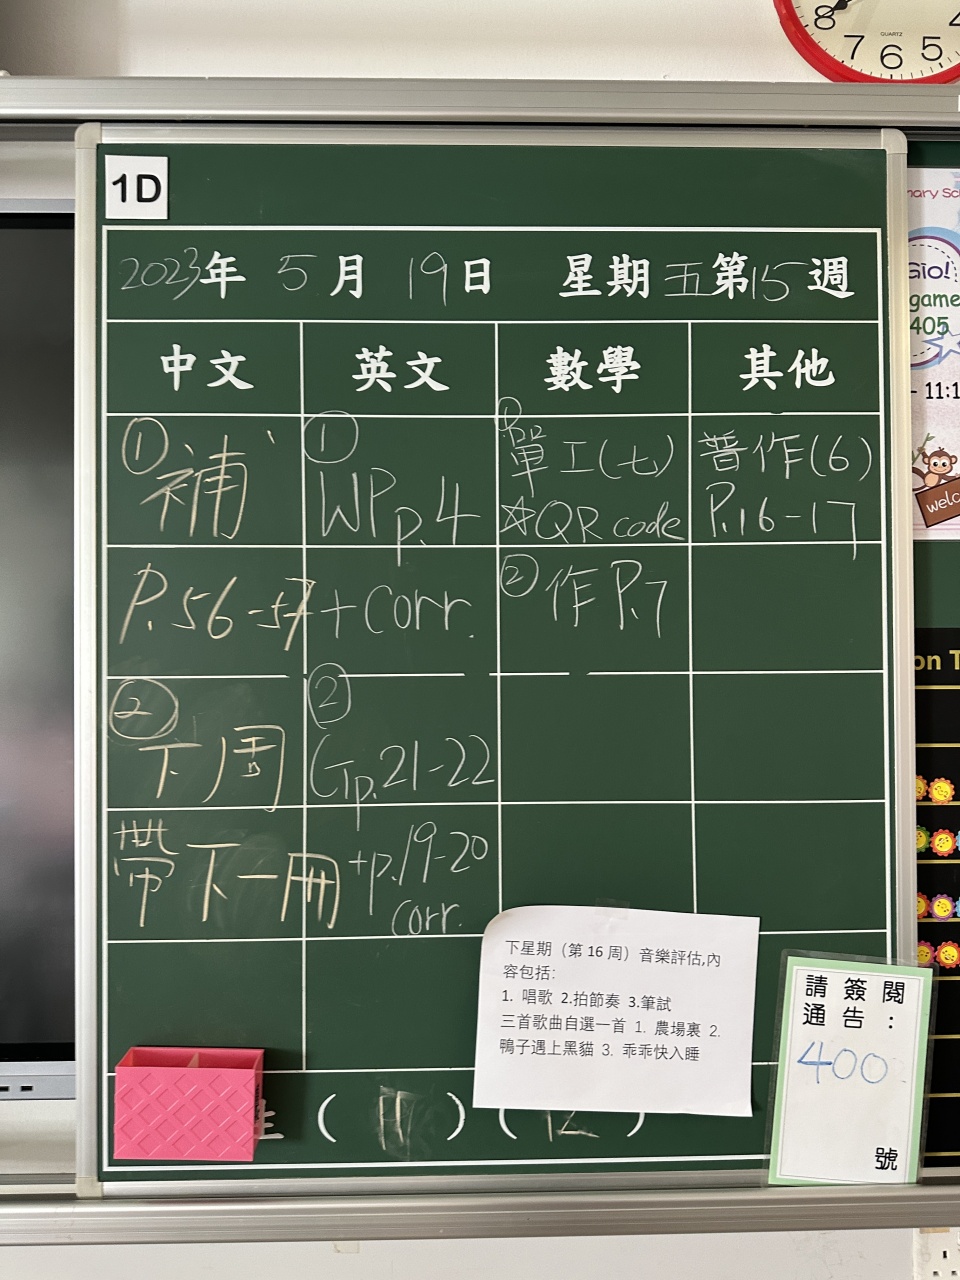 8 7 6 5 4
QUARTZ
1D
2023年 5月 19日 星期五第15週
中文 英文 數學 其他
① 補
P.56-57
② 下周
帶下一冊
①
WP p.4
+ Corr.
②
G p.21-22
+p.19-20
corr.
① 單工(七)
☆QR code
② 作 P.7
普作(6)
P.16-17
下星期（第 16 周）音樂評估,內
容包括：
1. 唱歌 2.拍節奏 3.筆試
三首歌曲自選一首 1. 農場裏 2.
鴨子遇上黑貓 3. 乖乖快入睡
請簽閱
通告：
400
號
( 11 ) ( 12 )
Gio!
game
405
- 11:1
welc
on T